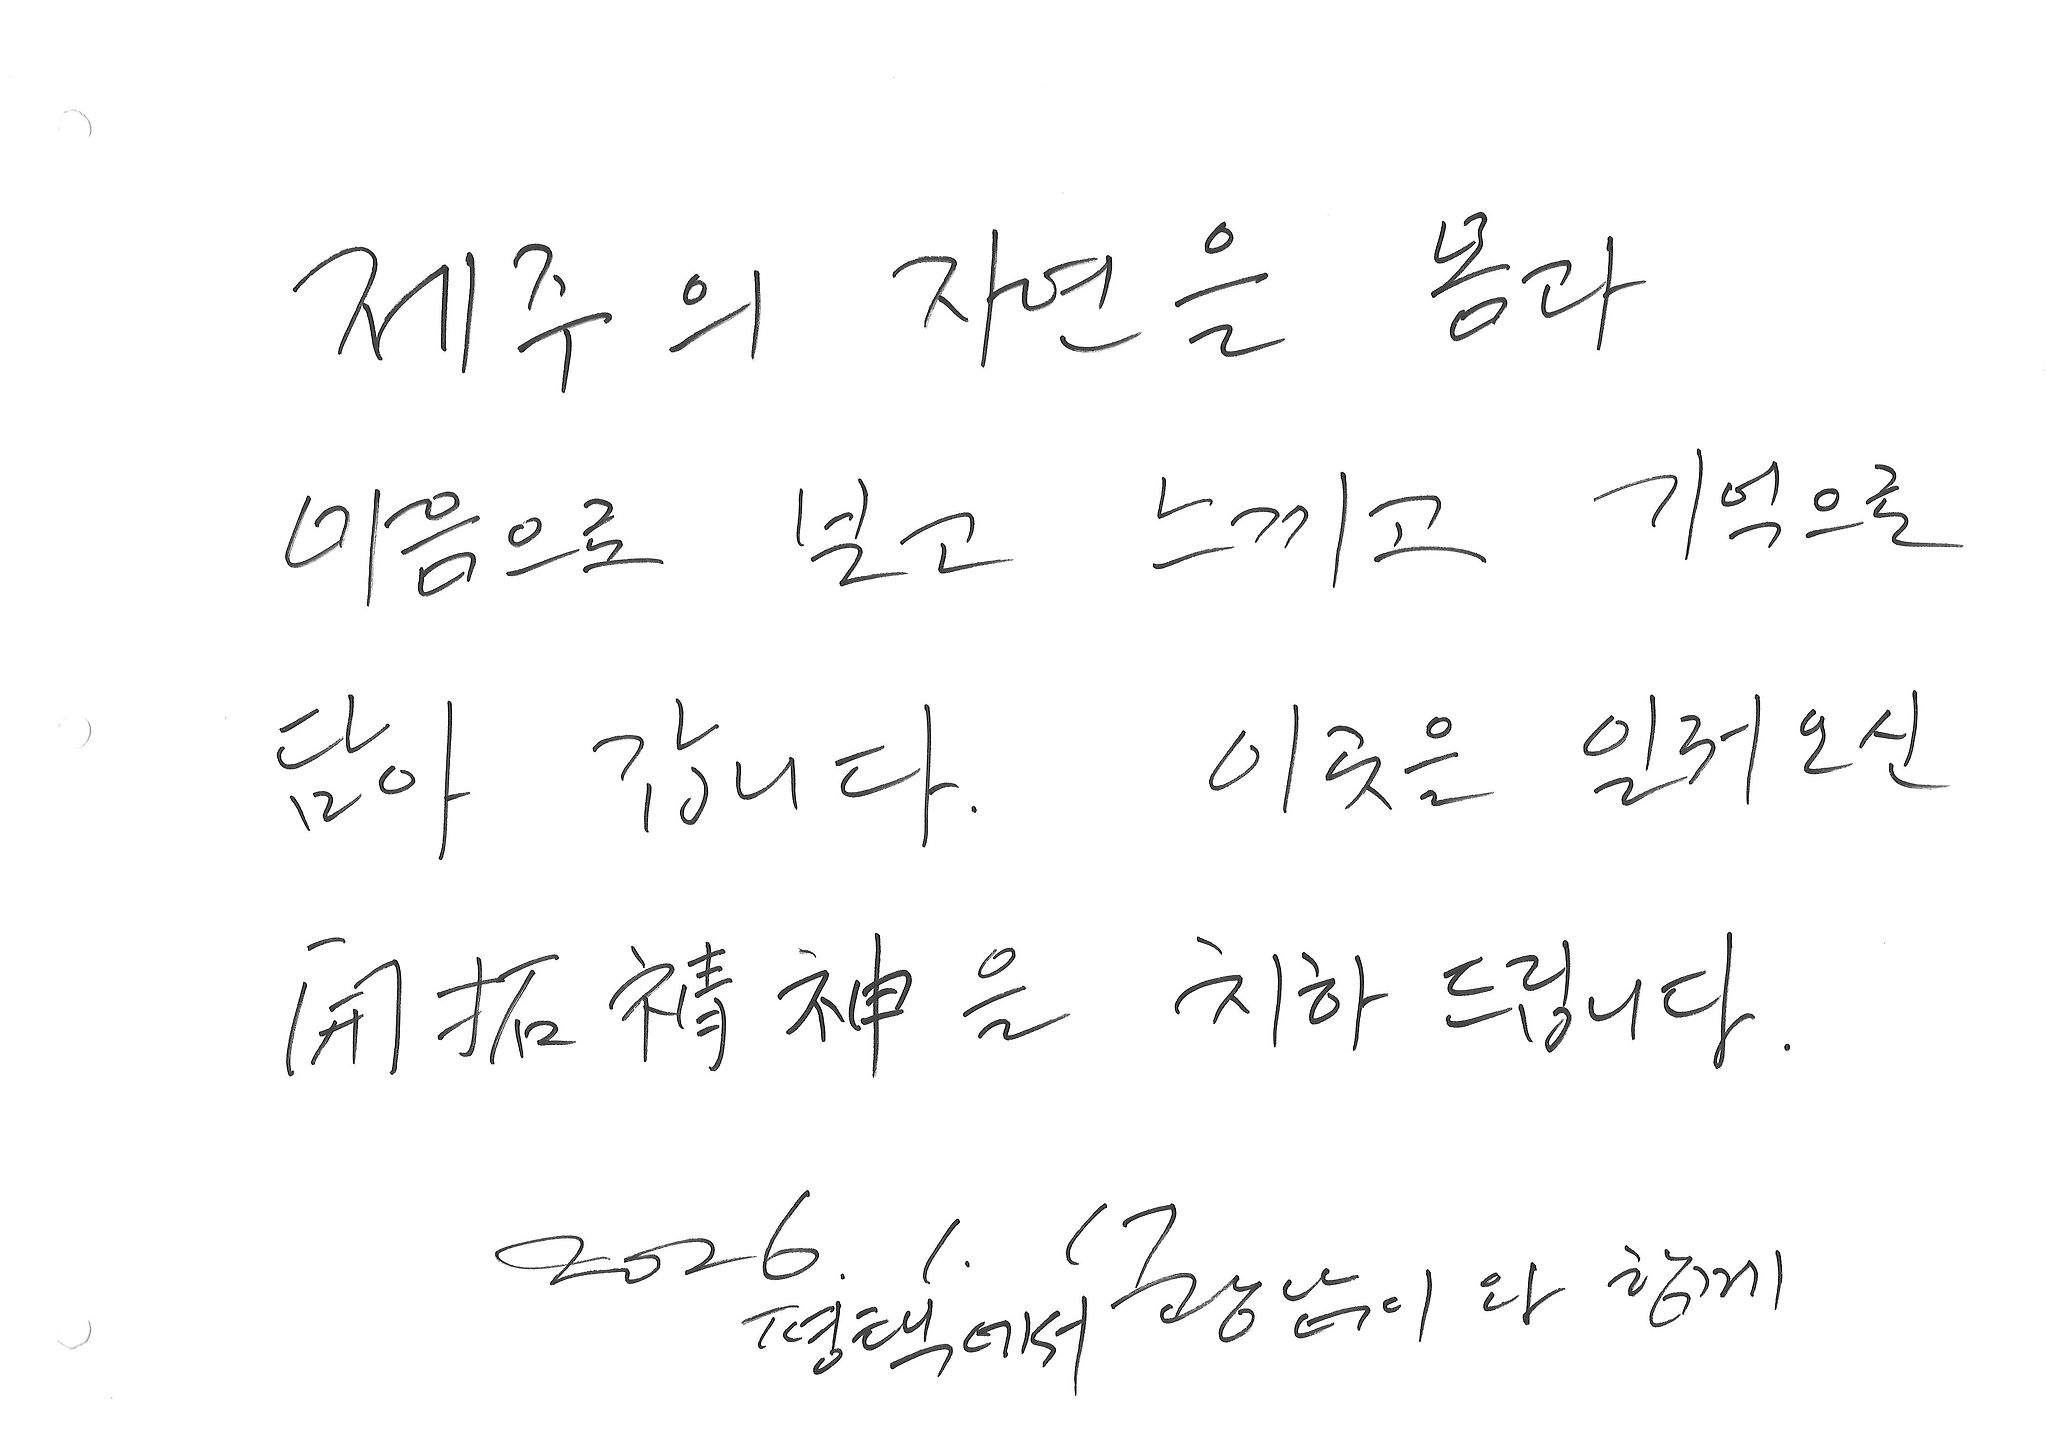 제주의 자연을 몸과
마음으로 보고 느끼고 기억으로
담아 갑니다. 이곳을 일궈오신
開拓精神을 치하 드립니다.
2026. 1. 17
평택에서 광남이와 함께